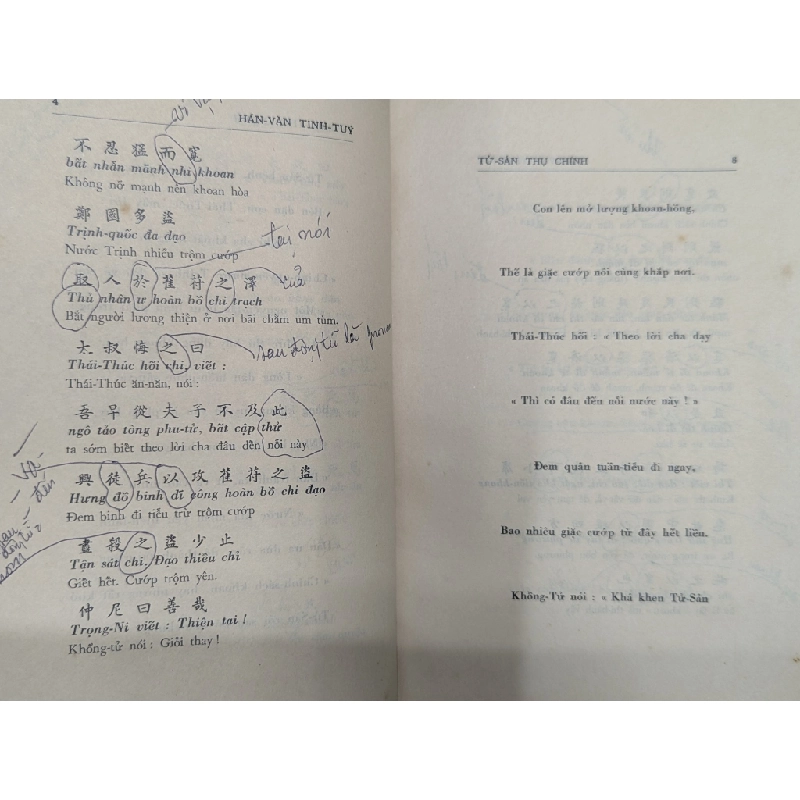 HÁN-VĂN TINH-TUÝ
不忍猛而寬
bất nhẫn mãnh nhi khoan
Không nỡ mạnh nên khoan hòa
鄭國多盜
Trịnh-quốc đa đạo
Nước Trịnh nhiều trộm cướp
tại, nói
取人於萑苻之澤
của
Thủ nhân ư hoàn bồ chi trạch
Bắt người lương thiện ở nơi bãi chằm um tùm.
大叔悔之曰
Thái-Thúc hối chi, viết :
Thái-Thúc ăn-năn, nói :
吾早從夫子不及此
ngô tảo tòng phu-tử, bất cập thử
ta sớm biết theo lời cha đâu đến nỗi này
興徒兵以攻萑苻之盜
Hưng đồ binh dĩ công hoàn bồ chi đạo
Đem binh đi tiễu trừ trộm cướp
盡殺之盜少止
Tận sát chi. Đạo thiểu chỉ
Giết hết. Cướp trộm yên.
仲尼曰善哉
Trọng-Ni viết : Thiện tai !
Khổng-tử nói : Giỏi thay !
TỬ-SẢN THỤ CHÍNH
Con lên mở lượng khoan-hồng,
Thế là giặc cướp nổi cùng khắp nơi.
Thái-Thúc hối : « Theo lời cha dạy
« Thì có đâu đến nỗi nước này ! »
Đem quân tuần-tiễu đi ngay.
Bao nhiêu giặc cướp từ đây hết liền.
Khổng-Tử nói : « Khá khen Tử-Sản